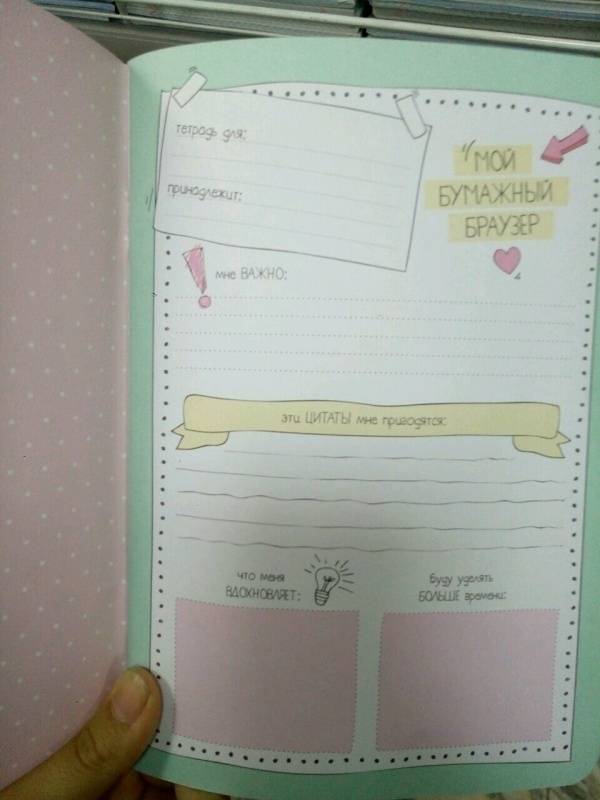 тетрадь для:
принадлежит:
МОЙ
БУМАЖНЫЙ
БРАУЗЕР
мне ВАЖНО:
эти ЦИТАТЫ мне пригодятся:
что меня
ВДОХНОВЛЯЕТ:
буду уделять
БОЛЬШЕ времени: